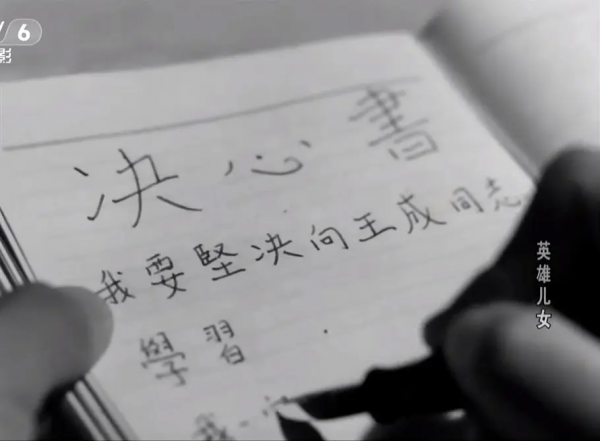 6
影
决心書
我要堅决向王成同志
學習.
我一
英雄儿女